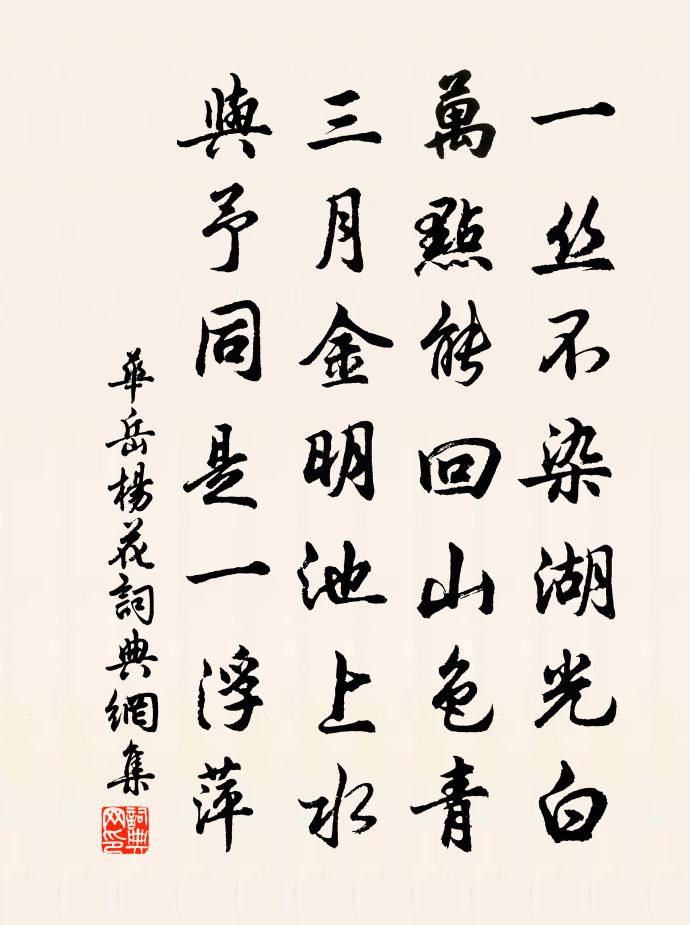 一丝不染湖光白
萬點能回山色青
三月金明池上水
與予同是一浮萍
華岳楊花詞典網集
詞典網印